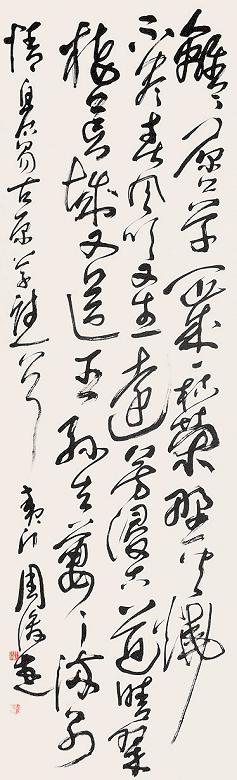 離〻原上草一歲一枯榮野火燒
不盡春風吹又生遠芳侵古道晴翠
接荒城又送王孫去萋〻滿別
情 白居易古原草 周